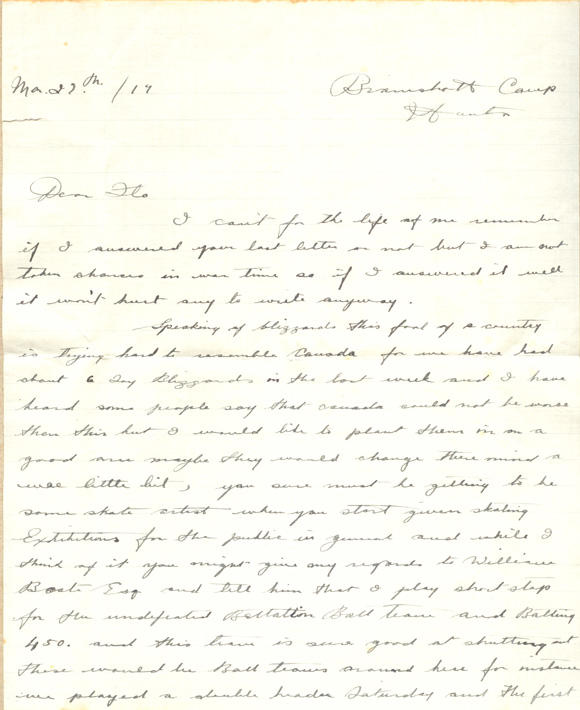 Mar. 27th. /17
Bramshott Camp
Hants
Dear Flo
I can't for the life of me remember
if I answered your last letter or not but I am not
taken chances in war time so if I answered it well
it won't hurt any to write anyway.
Speaking of blizzards this fool of a country
is trying hard to resemble Canada for we have had
about 6 day Blizzards in the last week and I have
heard some people say that Canada could not be worse
than this but I would like to plant them in on a
good one maybe they would change there mind a
wee little bit, you sure must be getting to be
some skate artist when you start given skating
Exhibitions for the public in general and while I
think of it you might give my regards to William
Esq and tell him that I play short stop
for the undefeated Battalion Ball team and Batting
450. and this team is sure good at shutting out
these would be Ball teams around here for instance
we played a double header Saturday and the first